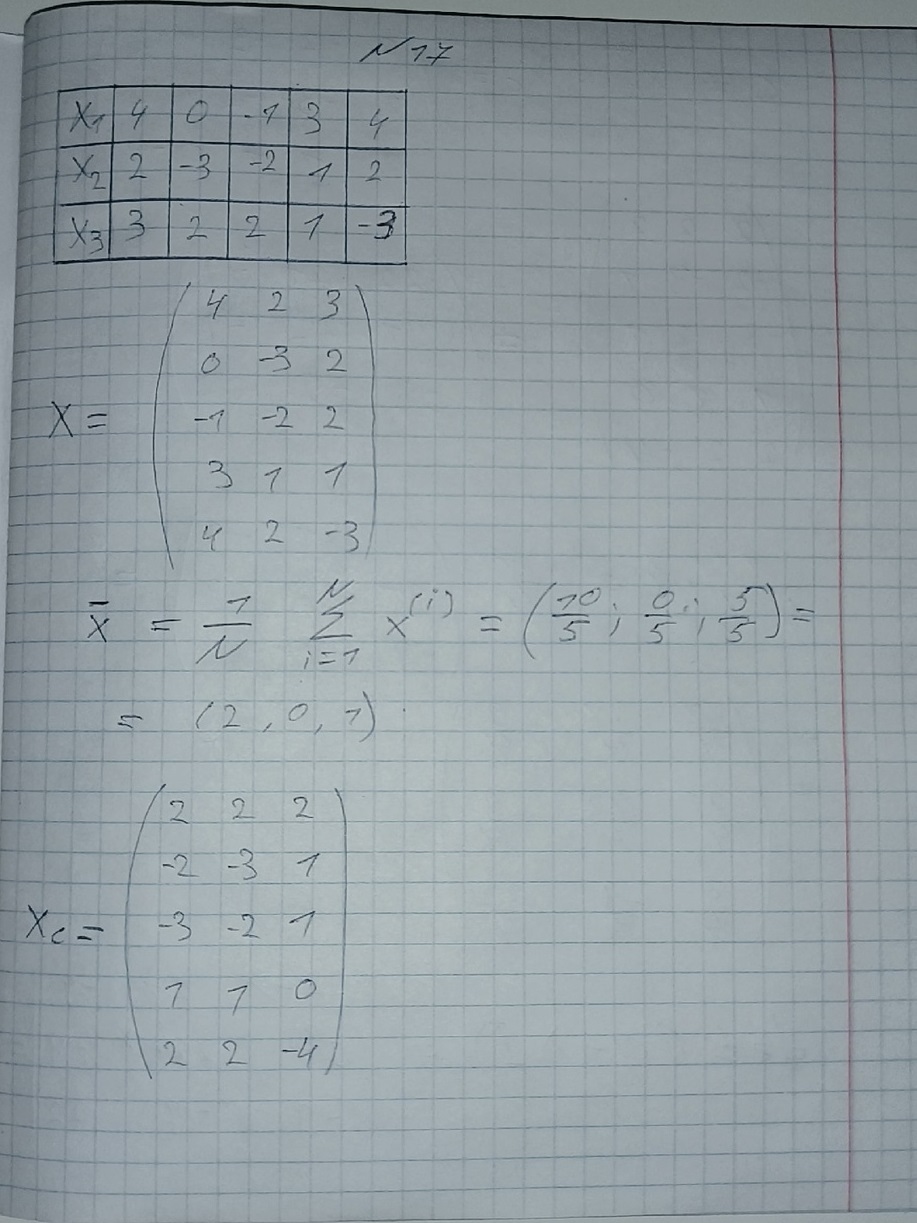 N17
X1 4 0 -1 3 4
X2 2 -3 -2 1 2
X3 3 2 2 1 -3
4 2 3
0 -3 2
X = -1 -2 2
3 1 1
4 2 -3
x̄ = 1/N N∑i=1 x^(i) = (10/5; 0/5; 5/5) =
= (2, 0, 1)
2 2 2
-2 -3 1
Xc = -3 -2 1
1 1 0
2 2 -4